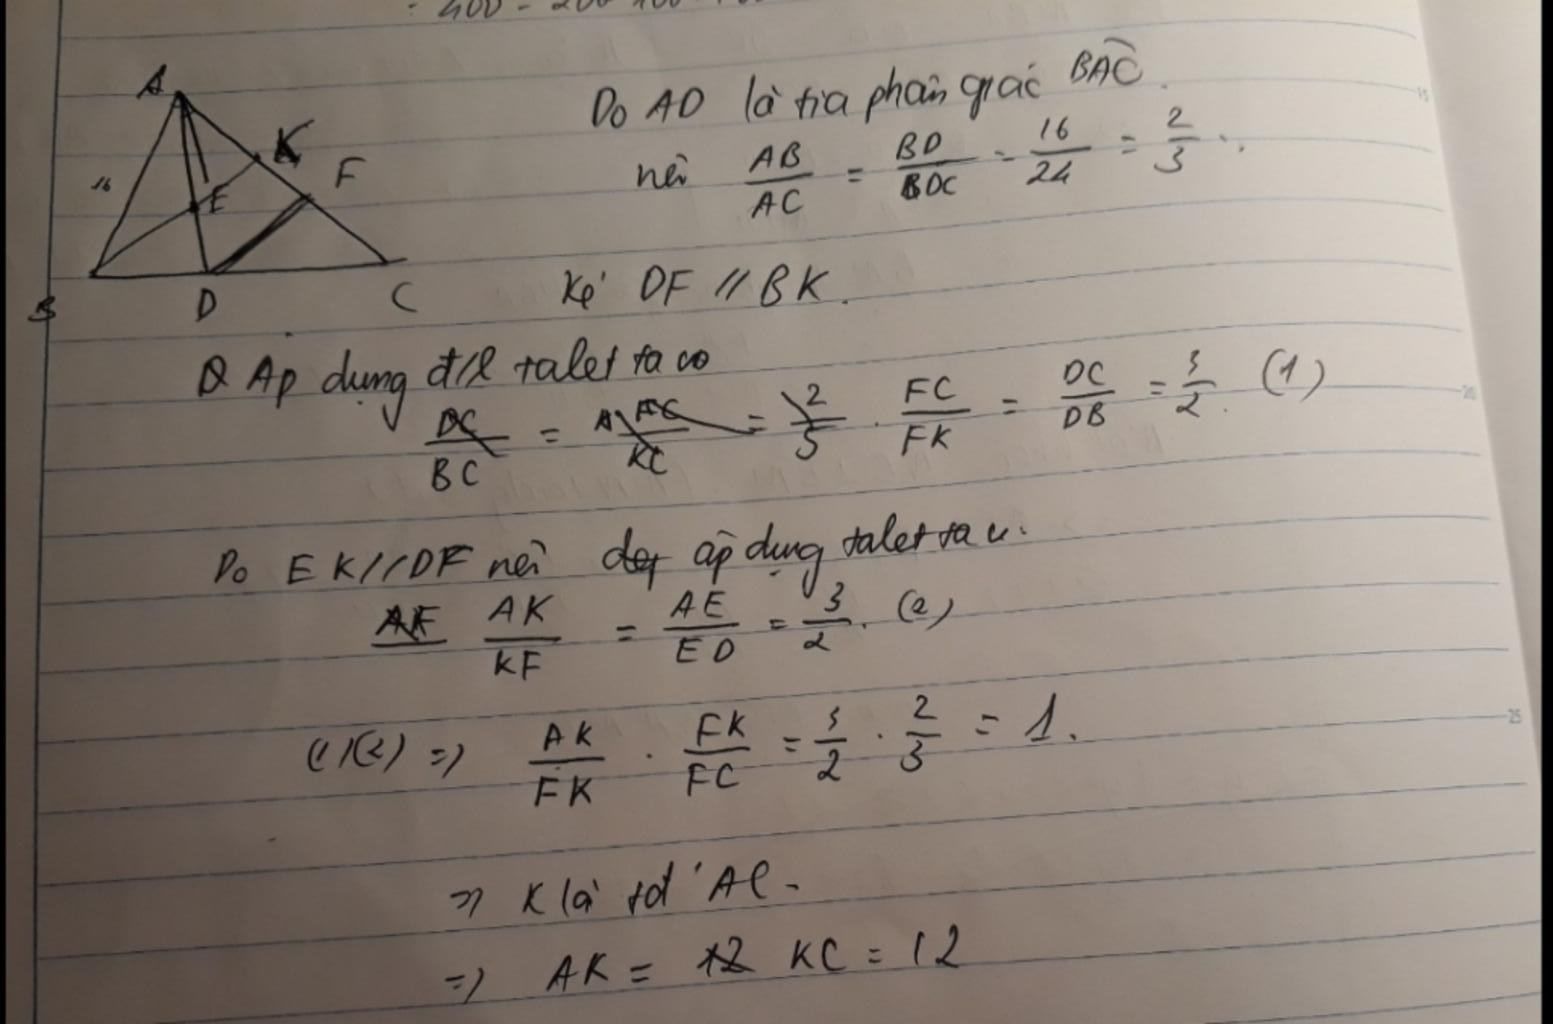 : 400 - 200
A
K
F
16
E
B
D
C
Do AD là tia phân giác BAC.
nên AB/AC = BD/DC = 16/24 = 2/3.
Kẻ DF // BK.
Ap dụng đ/l talet ta co
DC/BC = FC/KC = 2/5 . FC/FK = DC/DB = 3/2. (1)
Do EK//DF nên áp dụng talet ta c.
AF AK/KF = AE/ED = 3/2. (2)
(1)(2) => AK/FK . FK/FC = 3/2 . 2/3 = 1.
=> K là tđ AC.
=> AK = KC = 12